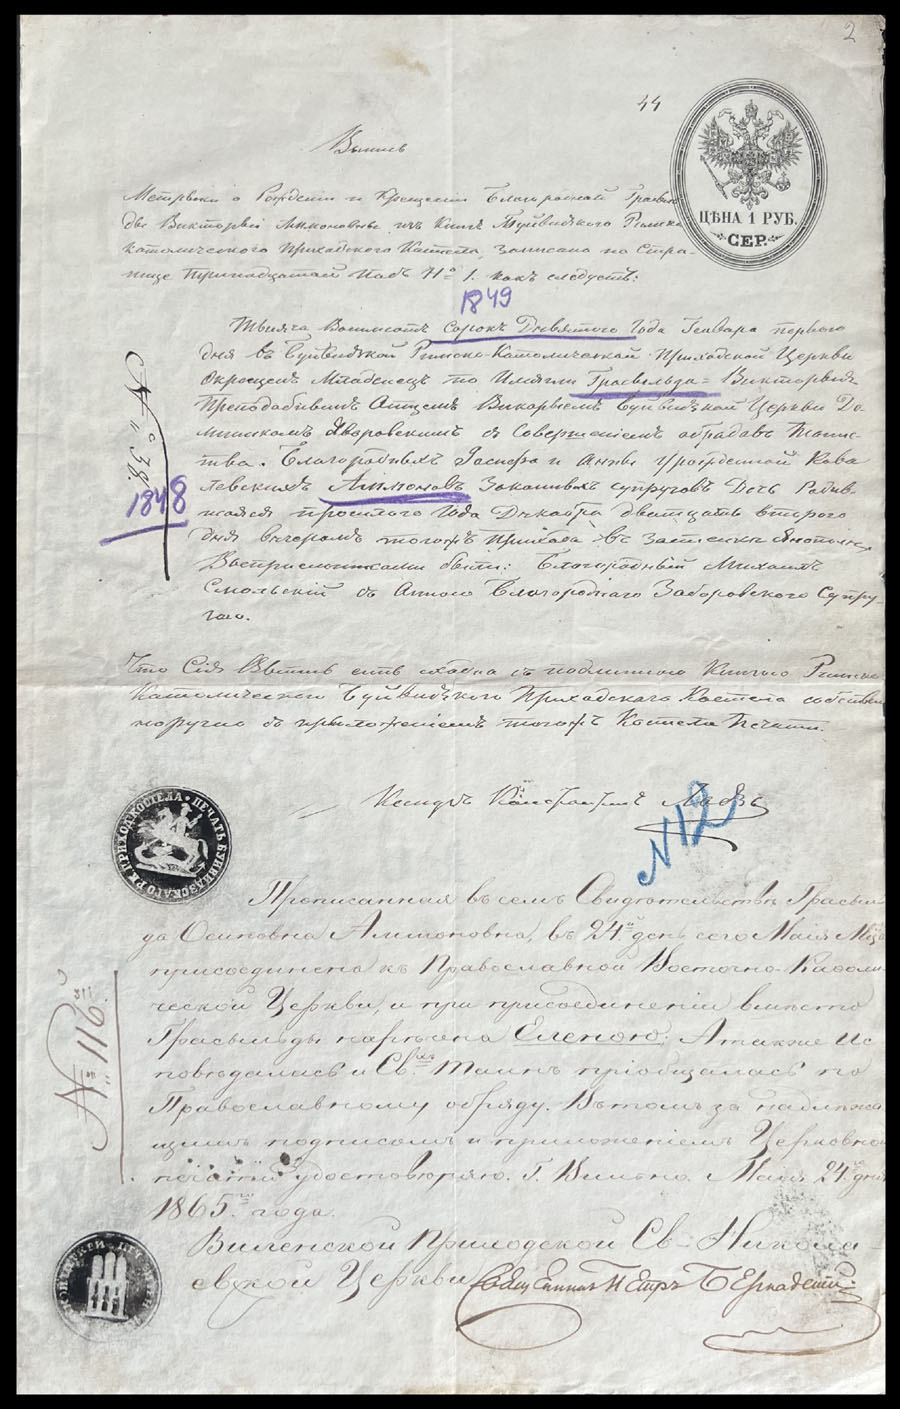 2
44
ЦѢНА 1 РУБ.
СЕР.
Выпись
Метрыки о Рожденіи и Крещеніи Благородной Грасыль
ды Викторыи Лимоновны изъ Книгъ Буйвидзкого Римско
католического Приходского Костела, записано на Стра-
нице Тринадцатай Подъ № 1. какъ слѣдуетъ:
1849
Тысяча Восимсотъ Сорокъ Дзевятого Года Генвара первого
дня въ Буйвидзкой Римско-Католической Приходской Церкви
Окрещенъ Младенецъ по Имени Грасыльда = Викторыя
Преподобнымъ Отцемъ Викарыемъ Буйвидзкой Церкви До-
миникомъ Яворовскимъ съ Совершеніемъ обрадовъ Таин-
ства. Благородныхъ Іосифа и Анны Урожденной Кова
левскихъ Лимоновъ Законныхъ супруговъ Дочь Родив-
шаяся прошлого Года Декабра двадцать второго
дня вечеромъ тогожъ Прихода въ Застенку
Воспріемниками были: Благородный Михаилъ
Смольскій съ Анною Благороднаго Заборовского Супру-
гою.
№ 38.
1848
Что Сія Выпись есть сходна съ подлинною Книгою Римско
Католического Буйвидзкого Приходскаго Костела собствен
норучно съ приложеніемъ тогожъ Костела Печати.
Ксендзъ
№12
ПЕЧАТЬ БУЙВИДЗСКАГО РК ПРИХОД: КОСТЕЛА
Прописанная въ семъ Свидѣтельствѣ Грасыль
да Осиповна Алимоновна, въ 24й день сего Маія Мца
присоединена къ Православной Восточно-Каѳоли
ческой Церкви, и при присоединеніи вмѣсто
Грасыльды наречена Еленою; А также ис
повѣдалась и Свхъ Таинъ пріобщалась по
Православному обряду. Въ томъ за надлежа
щимъ подписомъ и приложеніемъ Церковной
печати удостовѣряю. Г. Вильно. Маія 24. дня
1865го года.
№ 116.
Виленской Приходской Св-Никола-
евской Церкви Священникъ Петръ